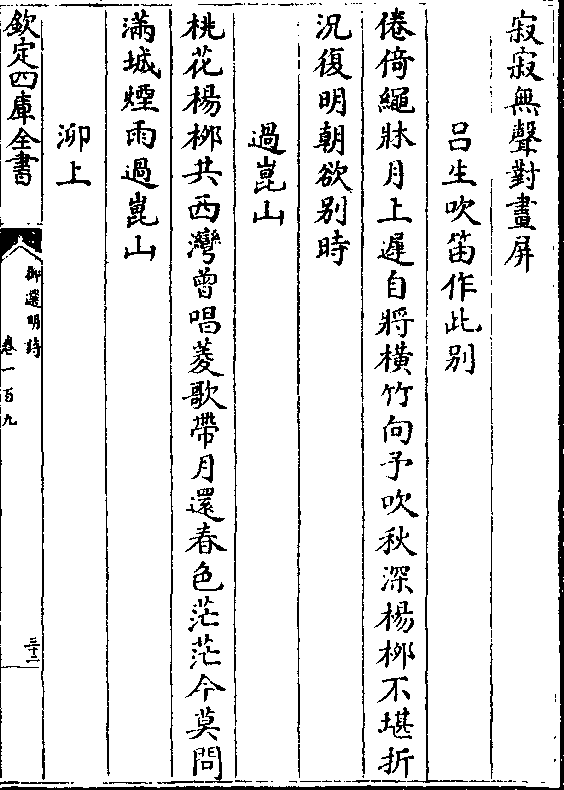 寂寂無聲對畫屏
吕生吹笛作此别
倦倚繩牀月上遲自將横竹向予吹秋深楊桞不堪折
況復明朝欲别時
過崑山
桃花楊桞共西灣曾唱菱歌帶月還春色茫茫今莫問
滿城煙雨過崑山
泖上
欽定四庫全書
御選明詩
卷一百九
三十二